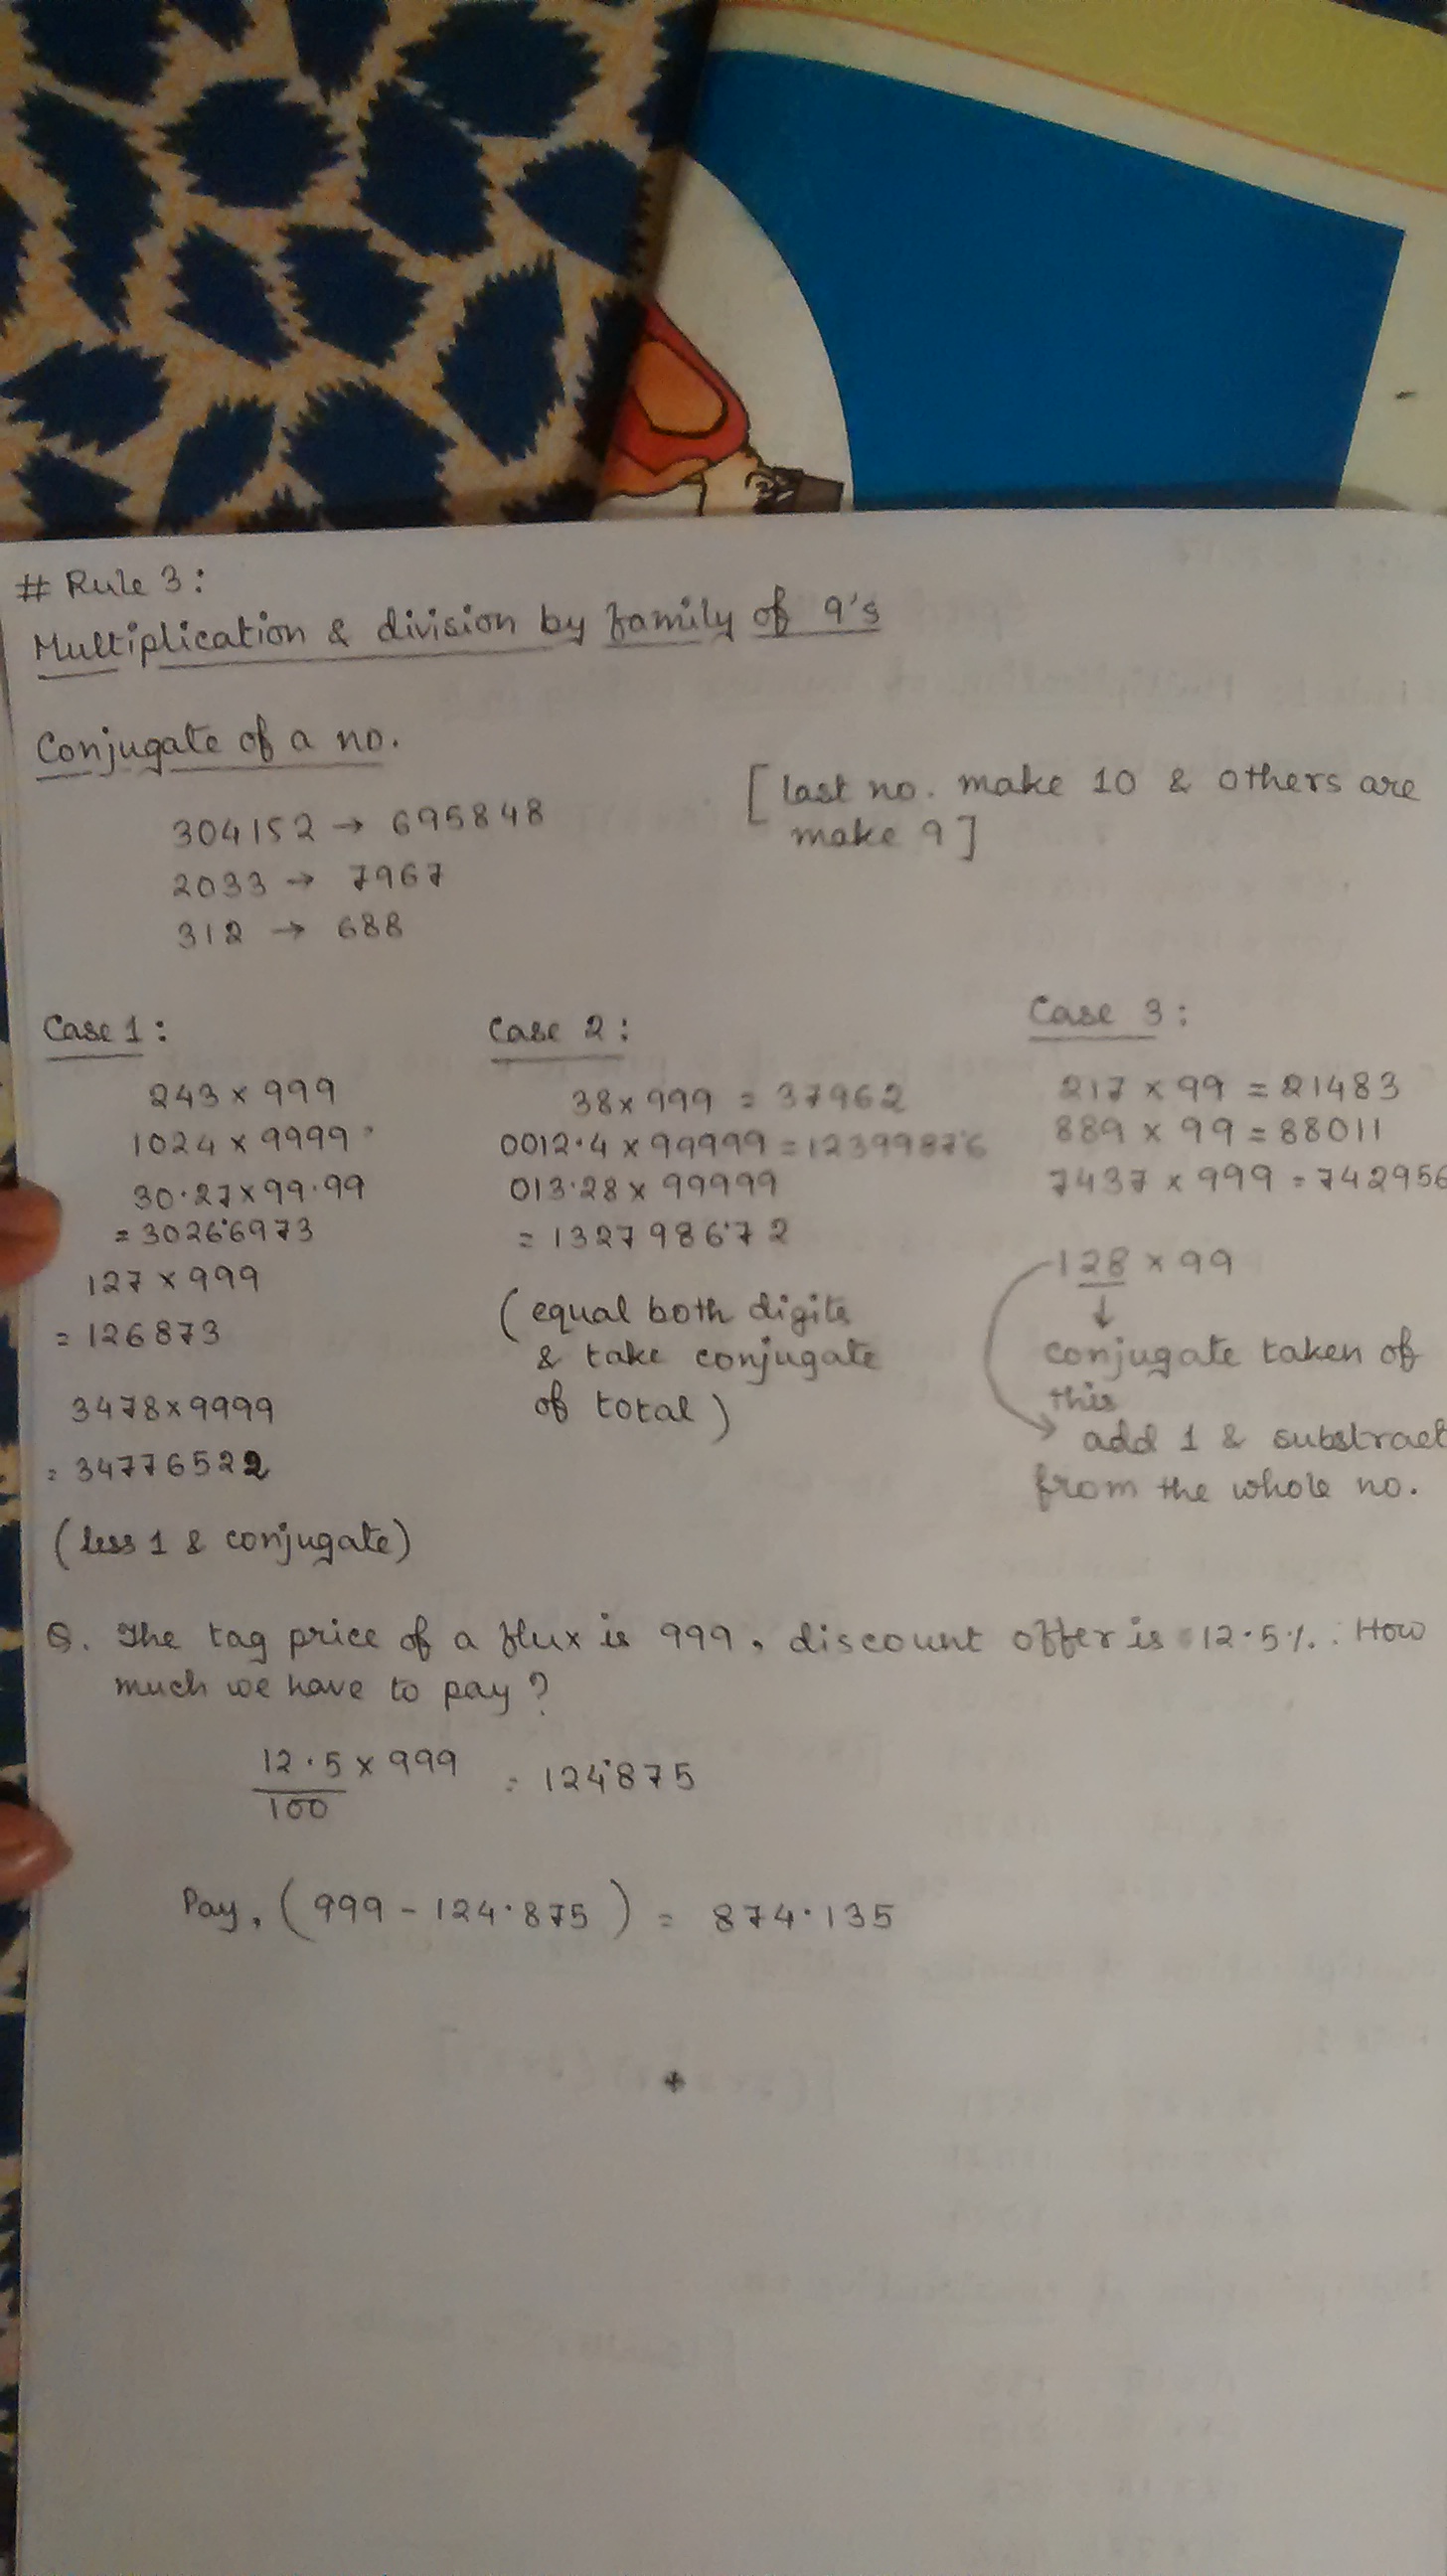 # Rule 3:
Multiplication & division by family of 9's
Conjugate of a no.
[last no. make 10 & others are
make 9]
304152 → 695848
2033 → 7967
312 → 688
Case 1:
243 x 999
1024 x 9999
30.27 x 99.99
= 3026.6973
127 x 999
= 126873
3478 x 9999
= 34776522
(less 1 & conjugate)
Case 2:
38 x 999 = 37962
0012.4 x 99999 = 1239987.6
013.28 x 99999
= 1327986.72
(equal both digits
& take conjugate
of total)
Case 3:
217 x 99 = 21483
889 x 99 = 88011
7437 x 999 = 742956
128 x 99
↓
conjugate taken of
this
add 1 & substract
from the whole no.
Q. The tag price of a flux is 999, discount offer is 12.5%. How
much we have to pay?
12.5 x 999 = 124.875
100
Pay, (999 - 124.875) = 874.135